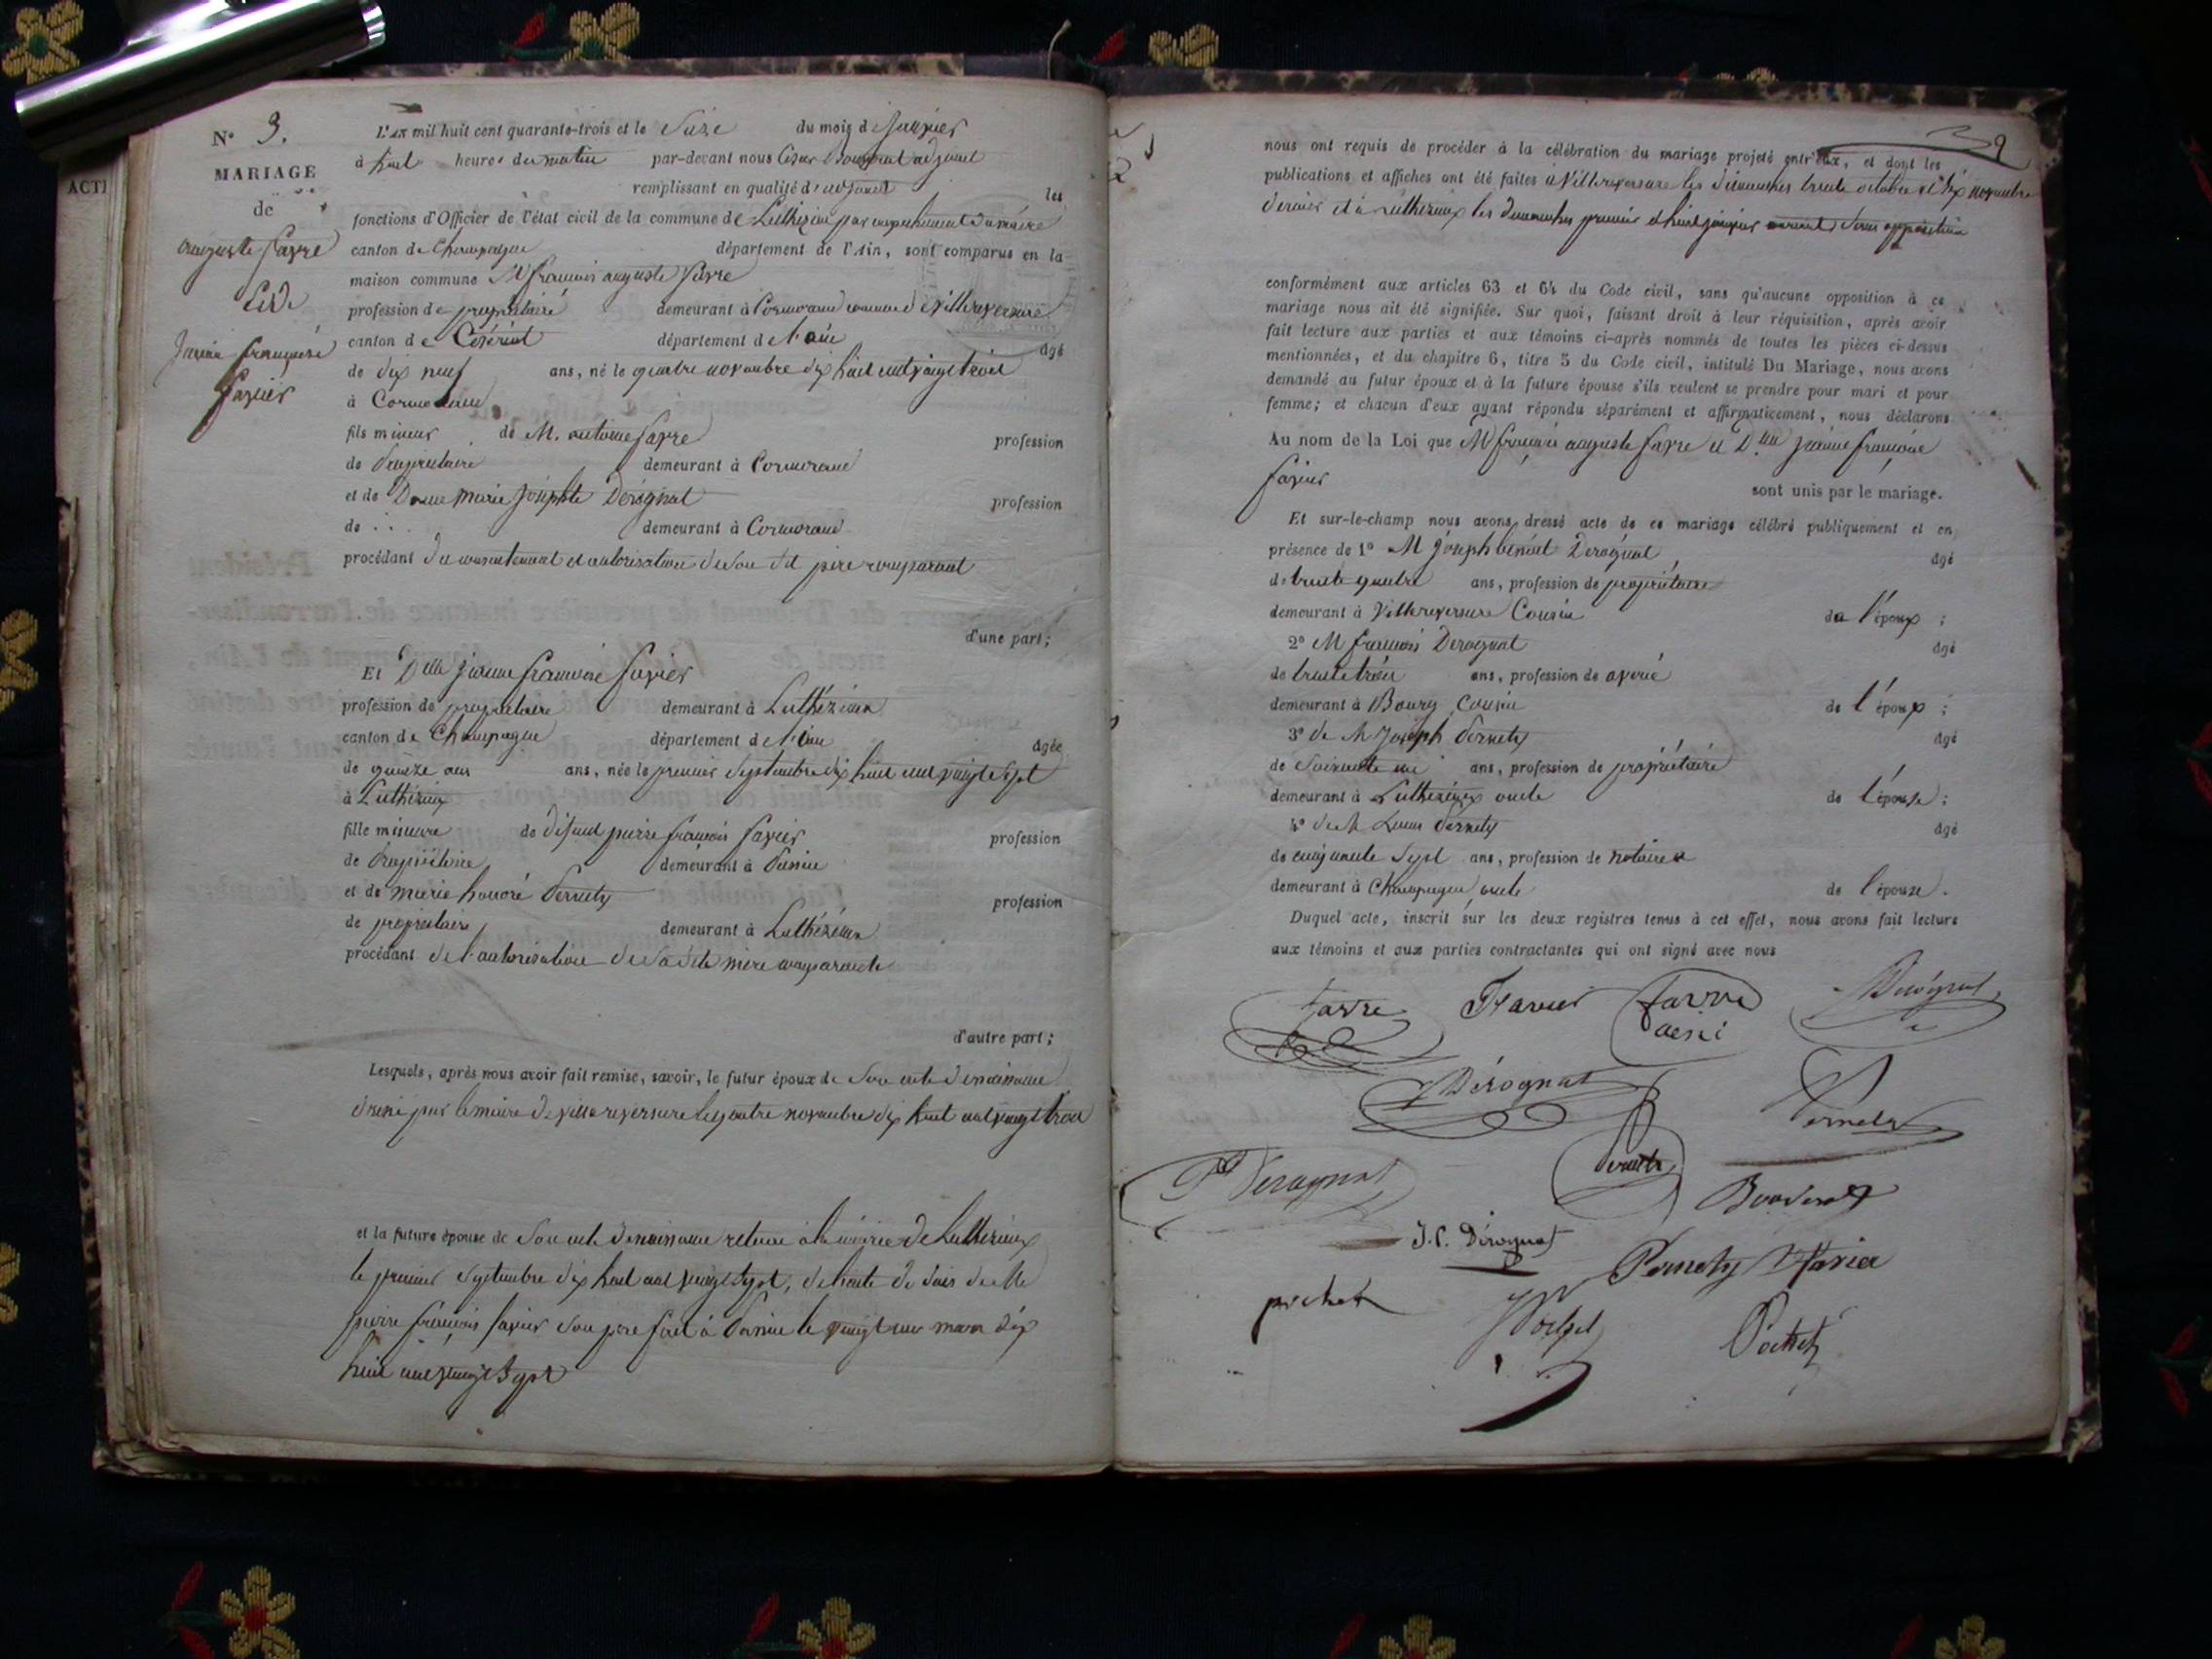 ACTI
N° 3.
MARIAGE
de
auguste favre
Et D
favier
L'an mil huit cent quarante-trois et le Seize du mois de Janvier
à huit heures du matin par-devant nous adjoint
remplissant en qualité d'adjoint les
fonctions d'Officier de l'état civil de la commune de Luthézieu par empêchement du maire
canton de Champagne département de l'Ain, sont comparus en la
maison commune Mr françois auguste favre
profession de propriétaire demeurant à Cormorand commune de Villereversure
canton de Ceyzériat département de l'ain âgé
de dix neuf ans, né le quatre novembre dix huit cent vingt trois
à Cormorand
fils mineur de M. antoine favre profession
de propriétaire demeurant à Cormorand
et de Dame marie josephte Dérognat profession
de .. demeurant à Cormorand
procédant du consentement et autorisation de son dit père comparant
d'une part;
Et Delle jeanne françoise favier
profession de propriétaire demeurant à Luthézieu
canton de Champagne département de l'ain âgée
de quinze ans ans, née le premier septembre dix huit cent vingt sept
à Luthézieu
fille mineure de défunt pierre françois favier profession
de propriétaire demeurant à
et de marie honoré Pernety profession
de propriétaire demeurant à Luthézieu
procédant de l'autorisation de sa dite mère comparante
d'autre part;
Lesquels, après nous avoir fait remise, savoir, le futur époux de Son acte de naissance
par le maire de villereversure le quatre novembre dix huit cent vingt trois
et la future épouse de Son acte de naissance retenu à la mairie de Luthézieu
le premier septembre dix huit cent vingt sept, de l'acte de décès de Mr
pierre françois favier son père fait à le vingt un mars dix
huit cent vingt sept
39
nous ont requis de procéder à la célébration du mariage projeté entr'eux, et dont les
publications et affiches ont été faites à Villereversure les dimanches trente octobre et six novembre
dernier et à Luthézieu les dimanches premier et huit janvier courant sans opposition
conformément aux articles 63 et 64 du Code civil, sans qu'aucune opposition à ce
mariage nous ait été signifiée. Sur quoi, faisant droit à leur réquisition, après avoir
fait lecture aux parties et aux témoins ci-après nommés de toutes les pièces ci-dessus
mentionnées, et du chapitre 6, titre 5 du Code civil, intitulé Du Mariage, nous avons
demandé au futur époux et à la future épouse s'ils veulent se prendre pour mari et pour
femme; et chacun d'eux ayant répondu séparément et affirmativement, nous déclarons
Au nom de la Loi que Mr françois auguste favre et Dlle jeanne françoise
favier
sont unis par le mariage.
Et sur-le-champ nous avons dressé acte de ce mariage célébré publiquement et en
présence de 1° M joseph benoit Derognat âgé
de trente quatre ans, profession de propriétaire
demeurant à Villereversure Cousin de l'époux ;
2° M francois Derognat âgé
de trente trois ans, profession de avoué
demeurant à Bourg, cousin de l'époux ;
3° de M joseph Pernety âgé
de Soixante un ans, profession de propriétaire
demeurant à Luthézieu oncle de l'épouse ;
4° de M Pernety âgé
de cinquante sept ans, profession de notaire
demeurant à Champagne, oncle de l'épouse.
Duquel acte, inscrit sur les deux registres tenus à cet effet, nous avons fait lecture
aux témoins et aux parties contractantes qui ont signé avec nous
favre favier favre
ainé Dérognat
Dérognat
Pernety
Derognat
J.C. Dérognat
Pernety
pochet
Pochet